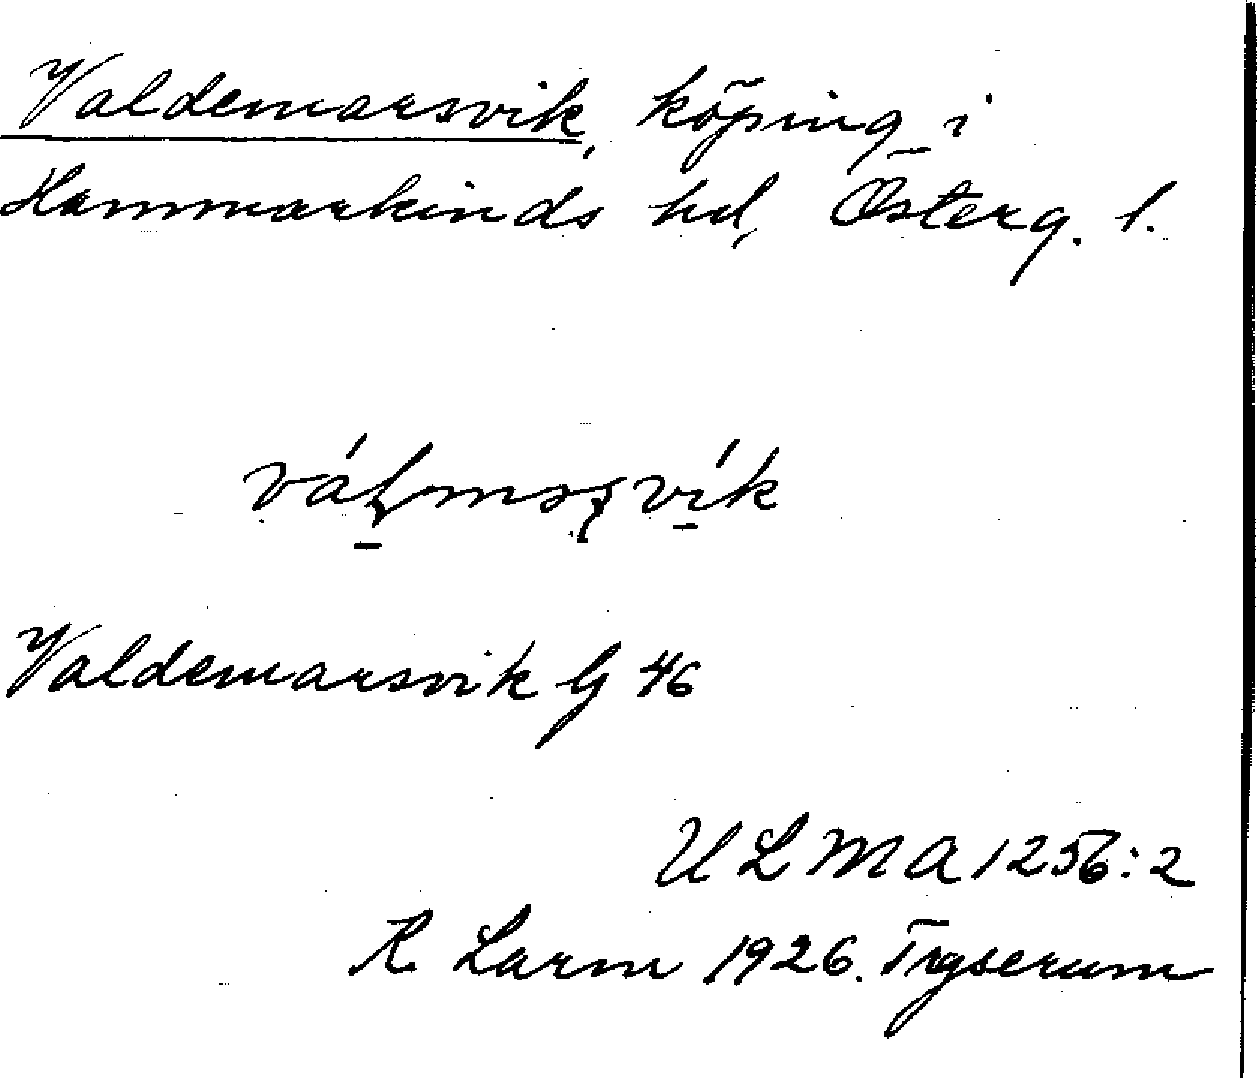 Valdemarsvik, köping i
Hammarkinds hd, Österg. l.
Valdemarsvik G 46
ULMA 1256:2
R. Larm 1926. Tryserum